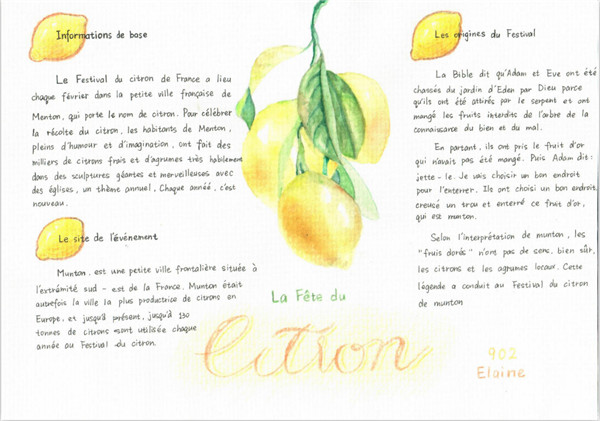 Informations de base
Le Festival du citron de France a lieu
chaque février dans la petite ville française de
Menton, qui porte le nom de citron. Pour célébrer
la récolte du citron, les habitants de Menton,
pleins d'humour et d'imagination, ont fait des
milliers de citrons frais et d'agrumes très habilement
dans des sculptures géantes et merveilleuses avec
des églises, un thème annuel. Chaque année, c'est
nouveau.
Le site de l'événement
Munton. est une petite ville frontalière située à
l'extrémité sud - est de la France. Munton était
autrefois la ville la plus productrice de citrons en
Europe, et jusqu'à présent, jusqu'à 130
tonnes de citrons sont utilisée chaque
année au Festival du citron.
La Fête du
Citron
Les origines du Festival
La Bible dit qu'Adam et Eve ont été
chassés du jardin d'Eden par Dieu parce
qu'ils ont été attirés par le serpent et ont
mangé les fruits interdits de l'arbre de la
connaissance du bien et du mal.
En partant, ils ont pris le fruit d'or
qui n'avait pas été mangé. Puis Adam dit:
jette - le. Je vais choisir un bon endroit
pour l'enterrer. Ils ont choisi un bon endroit,
creusé un trou et enterré ce fruit d'or,
qui est munton.
Selon l'interprétation de munton, les
"fruits dorés" n'ont pas de sens, bien sûr,
les citrons et les agrumes locaux. Cette
légende a conduit au Festival du citron
de munton
902
Elaine